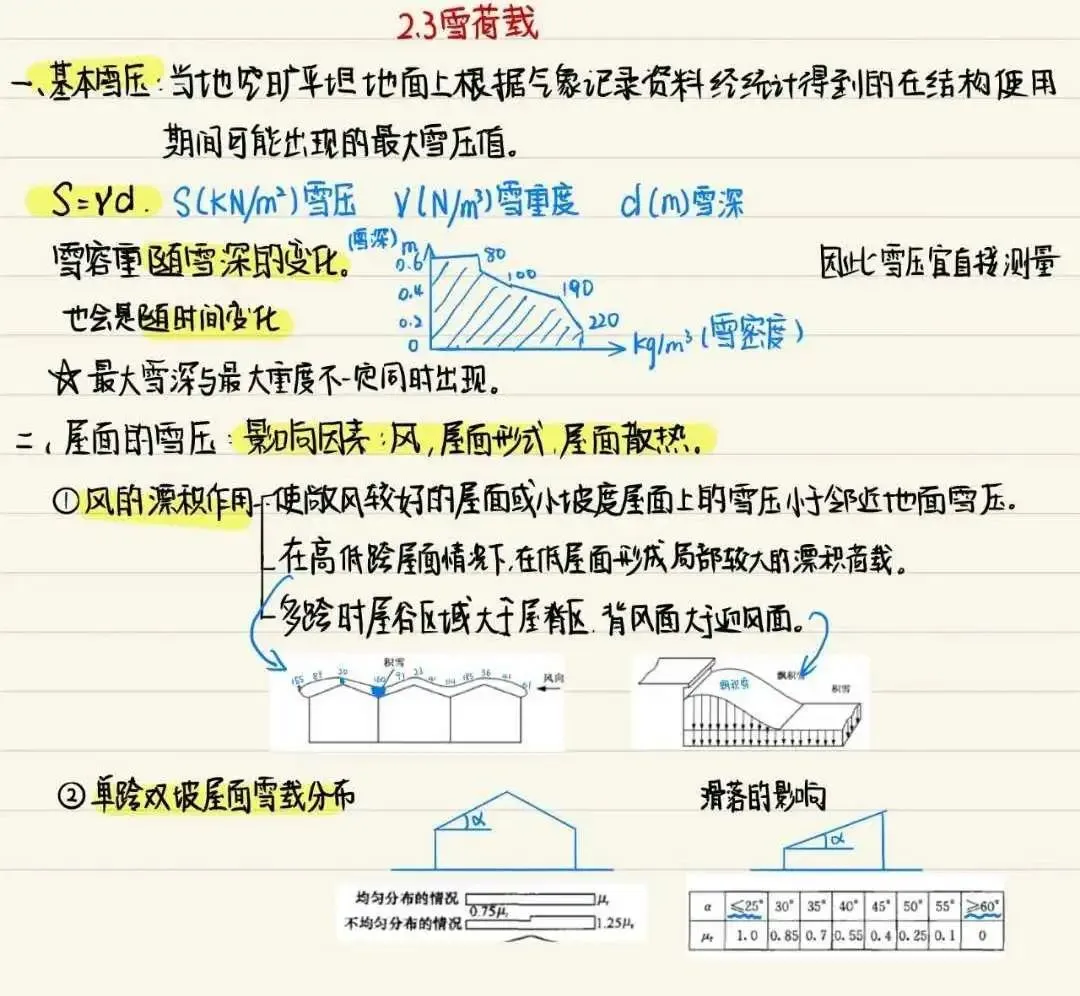 2.3雪荷载
一、基本雪压:当地空旷平坦地面上根据气象记录资料经统计得到的在结构使用
期间可能出现的最大雪压值。
S=γd. S(KN/m²)雪压 γ(N/m³)雪重度 d(m)雪深
雪容重随雪深的变化。
也会是随时间变化
(雪深) m
0.6
0.4
0.2
0
80
100
190
220
kg/m³(雪密度)
因此雪压宜直接测量
☆最大雪深与最大重度不一定同时出现。
二、屋面的雪压:影响因素:风,屋面形式,屋面散热。
①风的漂积作用 使敞风较好的屋面或小坡度屋面上的雪压小于邻近地面雪压。
在高低跨屋面情况下,在低屋面形成局部较大的漂积荷载。
多跨时屋谷区域大于屋脊区.背风面大于迎风面。
积雪
155 89 20 160 91 23 114 185 36 61
风向
飘积雪 飘积雪 积雪
②单跨双坡屋面雪载分布
滑落的影响
α
α
均匀分布的情况 μr
不均匀分布的情况 0.75μr 1.25μr
α ≤25° 30° 35° 40° 45° 50° 55° ≥60°
μr 1.0 0.85 0.7 0.55 0.4 0.25 0.1 0